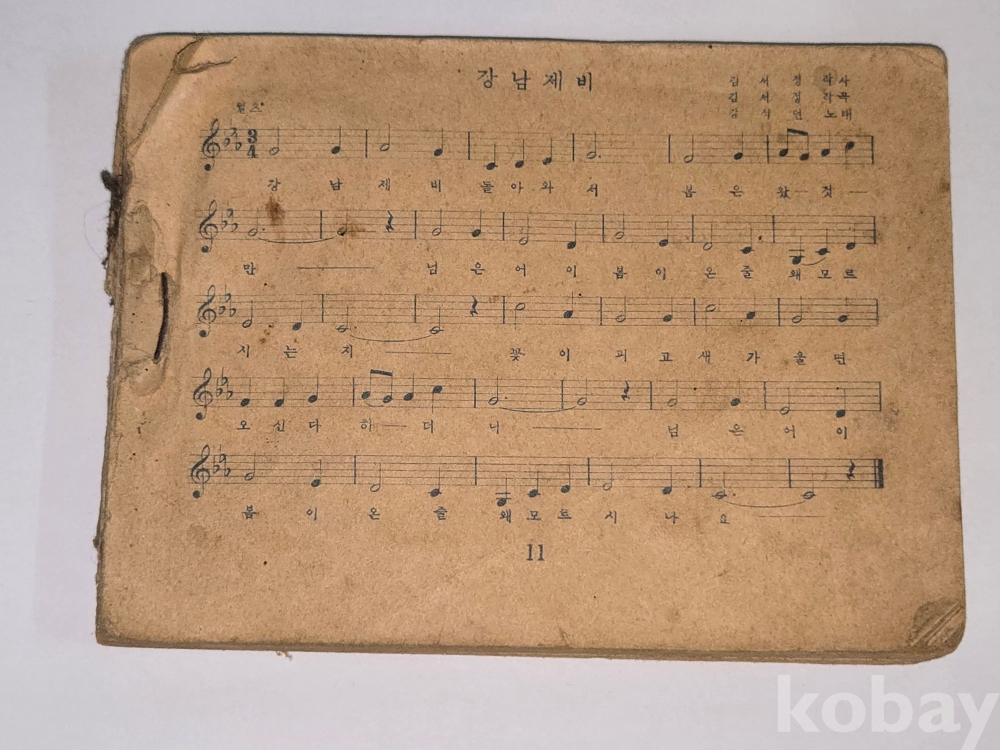 강남제비
김서정 작사
김서정 작곡
강석연 노래
월츠
3
4
강남제비돌아와서 봄은왔것—
만— 님은어이봄이온줄왜모르
시는지— 꽃이피고새가울면
오신다하—더니— 님은어이
봄이온줄왜모르시나요—
11
kobay